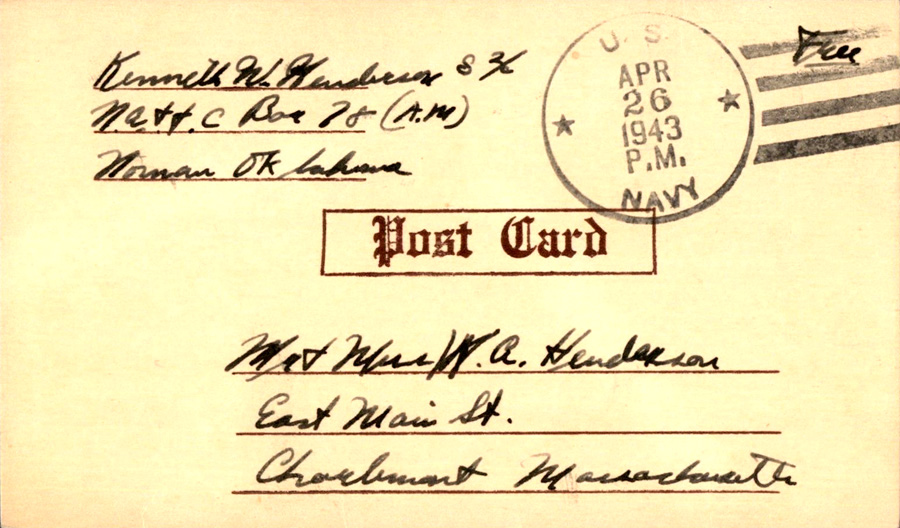 Kenneth W. Henderson S 2/c
N.A.t.t.C Box 78 (A.M)
Norman Oklahoma
U. S.
APR
26
1943
P.M.
NAVY
Free
Post Card
Mr & Mrs W. A. Henderson
East Main St.
Charlemont Massachusetts